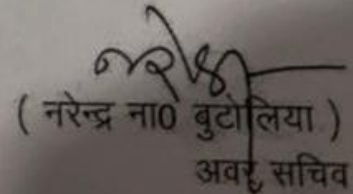 ( नरेन्द्र ना0 बुटोलिया )
अवर सचिव